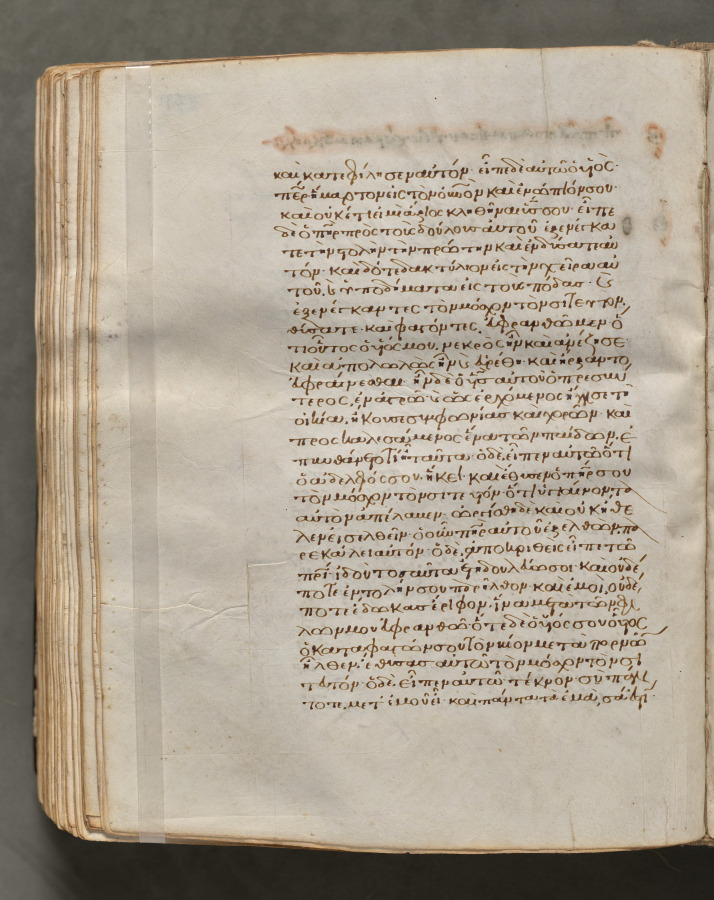 καὶ κατεφίλησεν αὐτόν· εἶπε δὲ αὐτῶ ὁ υἱὸς·
περ ἥμαρτον εἰς τὸν οὐνον καὶ ἐνώπιόν σου·
καὶ οὐκέτι εἰμὶ ἄξιος κληθῆναι υς σου· εἶπε
δὲ ὁ πηρ πρὸς τοὺς δούλους αὐτοῦ· ἐξενέγκα
τε τὴν στολὴν τὴν πρώτην καὶ ἐνδύσατε αὐ
τόν· καὶ δότε δακτύλιον εἰς τὴν χεῖρα αὐ
τοῦ. καὶ ὑποδήματα εἰς τοὺς πόδας· καὶ
ἐξενέγκαντες τὸν μόσχον τὸν σιτευτὸν,
θύσατε· καὶ φαγόντες, εὐφρανθῶμεν ὅ
τι οὗτος ὁ υἱός μου, νεκρὸς ἦν καὶ ἀνέζησε·
καὶ ἀπολωλὼς ἦν καὶ εὑρέθη· καὶ ἤρξαντο
εὐφραίνεσθαι· ἦν δὲ ὁ υς αὐτοῦ ὁ πρεσβύ
τερος, ἐν ἀγρῶ· καὶ ὡς ἐρχόμενος ἤγγισε τῆ
οἰκία. ἤκουσε συμφωνίας καὶ χορῶν· καὶ
προσκαλεσάμενος ἕνα τῶν παίδων, ἐ
πυνθάνετο τί εἴη ταῦτα· ὁ δὲ, εἶπεν αὐτῶ ὅτι
ὁ ἀδελφός σου. ἥκει· καὶ ἔθυσεν ὁ πηρ σου
τὸν μόσχον τὸν σιτευτόν. ὅτι ὑγιαίνοντα
αὐτὸν ἀπέλαβεν· ὠργίσθη δὲ καὶ οὐκ ἤθε
λεν εἰσελθεῖν· ὁ οὖν πηρ αὐτοῦ ἐξελθὼν, πα
ρεκάλει αὐτόν· ὁ δὲ, ἀποκριθεὶς εἶπε τῶ
πρι· ἰδοὺ τοσαῦτα ἔτη δουλεύω σοι καὶ οὐδέ
ποτε ἐντολήν σου παρῆλθον· καὶ ἐμοὶ, οὐδέ
ποτε ἔδωκας ἔριφον, ἵνα μετὰ τῶν φί
λων μου εὐφρανθῶ· ὅτε δὲ ὁ υἱός σου οὗτος
ὁ καταφαγών σου τὸν βίον μετὰ πορνῶν
ἦλθεν, ἔθυσας αὐτῶ τὸν μόσχον τὸν σι
τευτόν· ὁ δὲ. εἶπεν αὐτῶ τέκνον· σὺ πάν
τοτε μετ' ἐμοῦ εἶ· καὶ πάντα τὰ ἐμὰ, σά ἐστι·